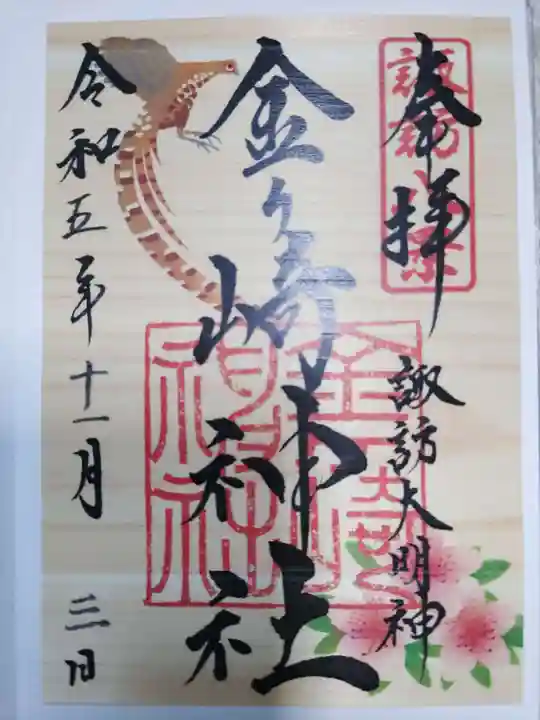 奉拝
諏訪大明神
諏訪八景
金ヶ崎神社
金崎神社
令和五年十一月三日